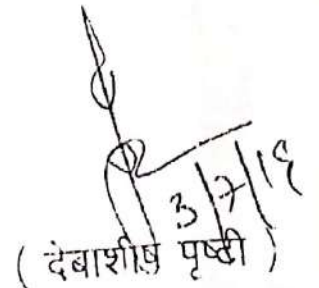 3/7/19
( देबाशीष पृष्टी )